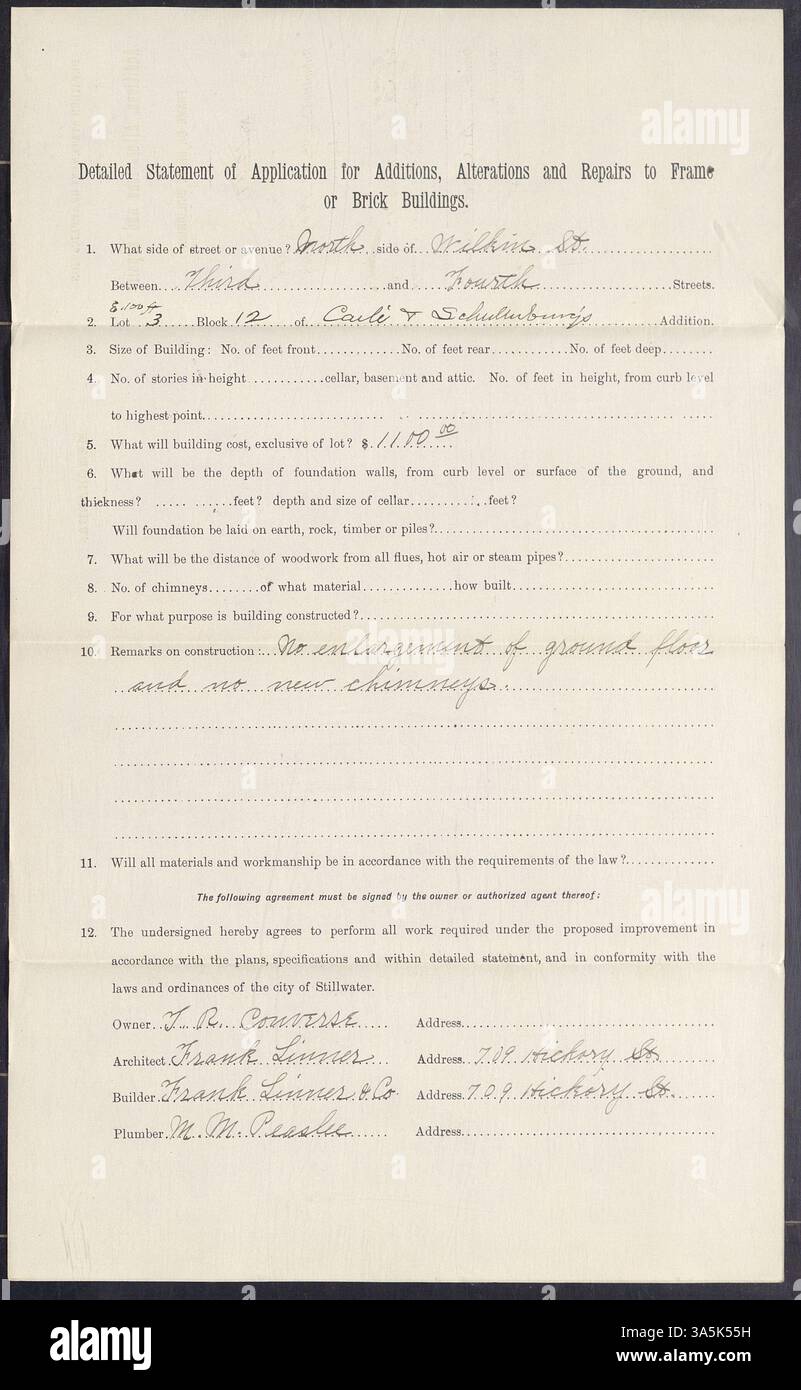 Detailed Statement of Application for Additions, Alterations and Repairs to Frame
or Brick Buildings.
1. What side of street or avenue? North side of Wilkin St.
Between Third and Fourth Streets.
2. Lot 3 Block 12 of Carli & Schullenburg's Addition.
3. Size of Building: No. of feet front............No. of feet rear............No. of feet deep........
4. No. of stories in height............cellar, basement and attic. No. of feet in height, from curb level
to highest point
5. What will building cost, exclusive of lot? $ 1100.00
6. What will be the depth of foundation walls, from curb level or surface of the ground, and
thickness? ..... ......feet? depth and size of cellar............feet?
Will foundation be laid on earth, rock, timber or piles?
7. What will be the distance of woodwork from all flues, hot air or steam pipes?
8. No. of chimneys........of what material..............how built
9. For what purpose is building constructed?
10. Remarks on construction: No enlargement of ground floor
and no new chimneys.
11. Will all materials and workmanship be in accordance with the requirements of the law?
The following agreement must be signed by the owner or authorized agent thereof:
12. The undersigned hereby agrees to perform all work required under the proposed improvement in
accordance with the plans, specifications and within detailed statement, and in conformity with the
laws and ordinances of the city of Stillwater.
Owner T. R. Converse Address
Architect Frank Linner Address 709 Hickory St.
Builder Frank Linner & Co. Address 709 Hickory St.
Plumber M. M. Peaslee Address
alamy
Image ID: 3A5K55H
www.alamy.com